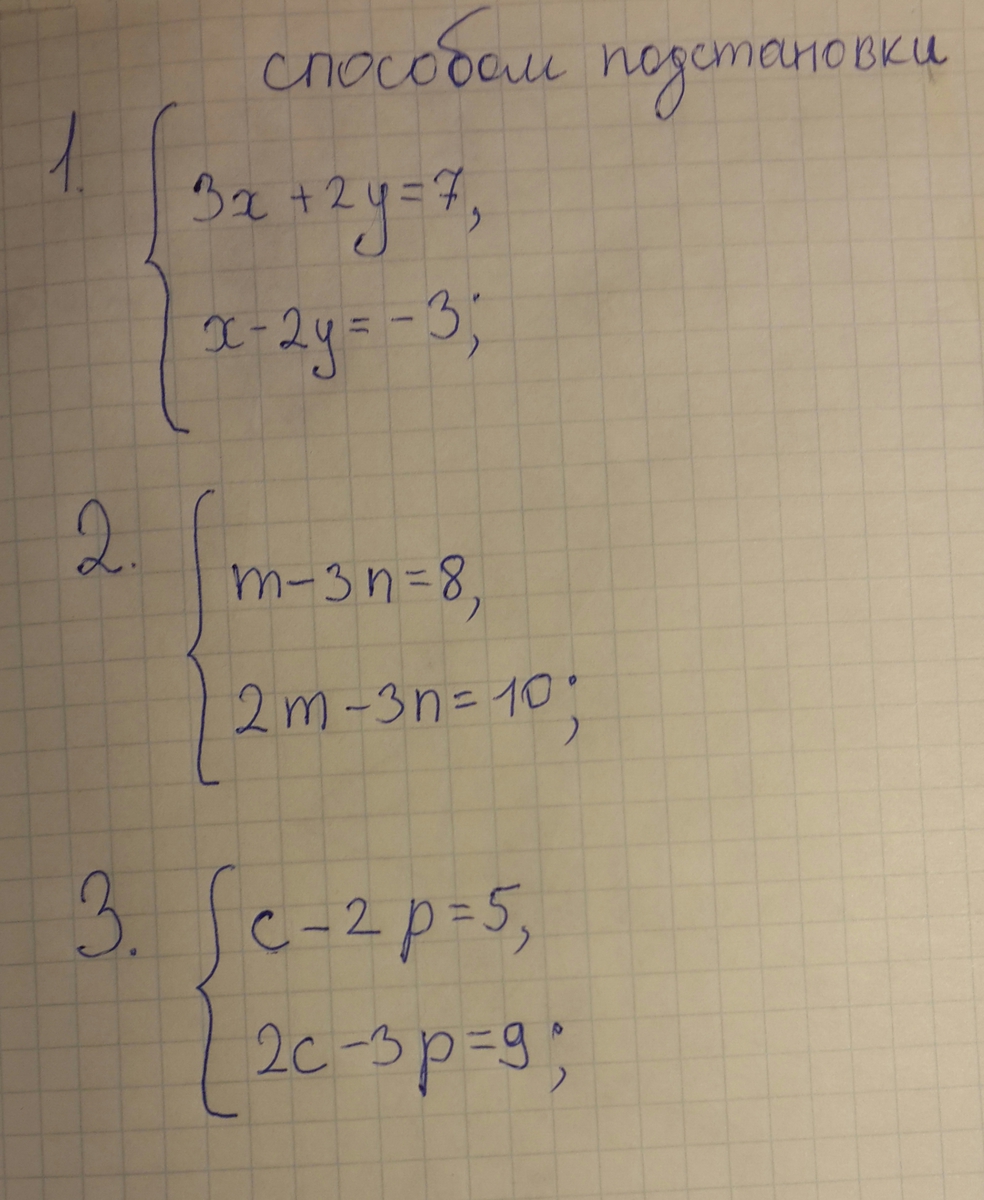 способом подстановки
1. 3x + 2y = 7,
x - 2y = -3;
2. m - 3n = 8,
2m - 3n = 10;
3. c - 2p = 5,
2c - 3p = 9;